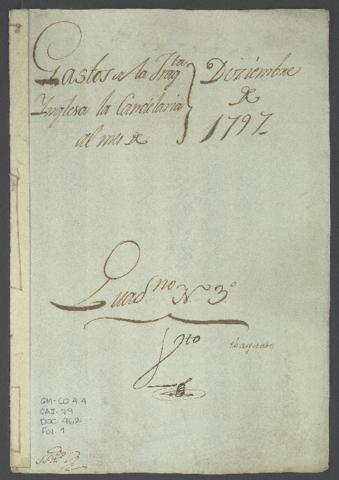 Gastos de la Fragta
Inglesa la Candelaria
al mes de
Diziembre
de
1797
Quadno No 3o
GM-CO 4.4
CAJ. 79
DOC. 462
FOL. 1